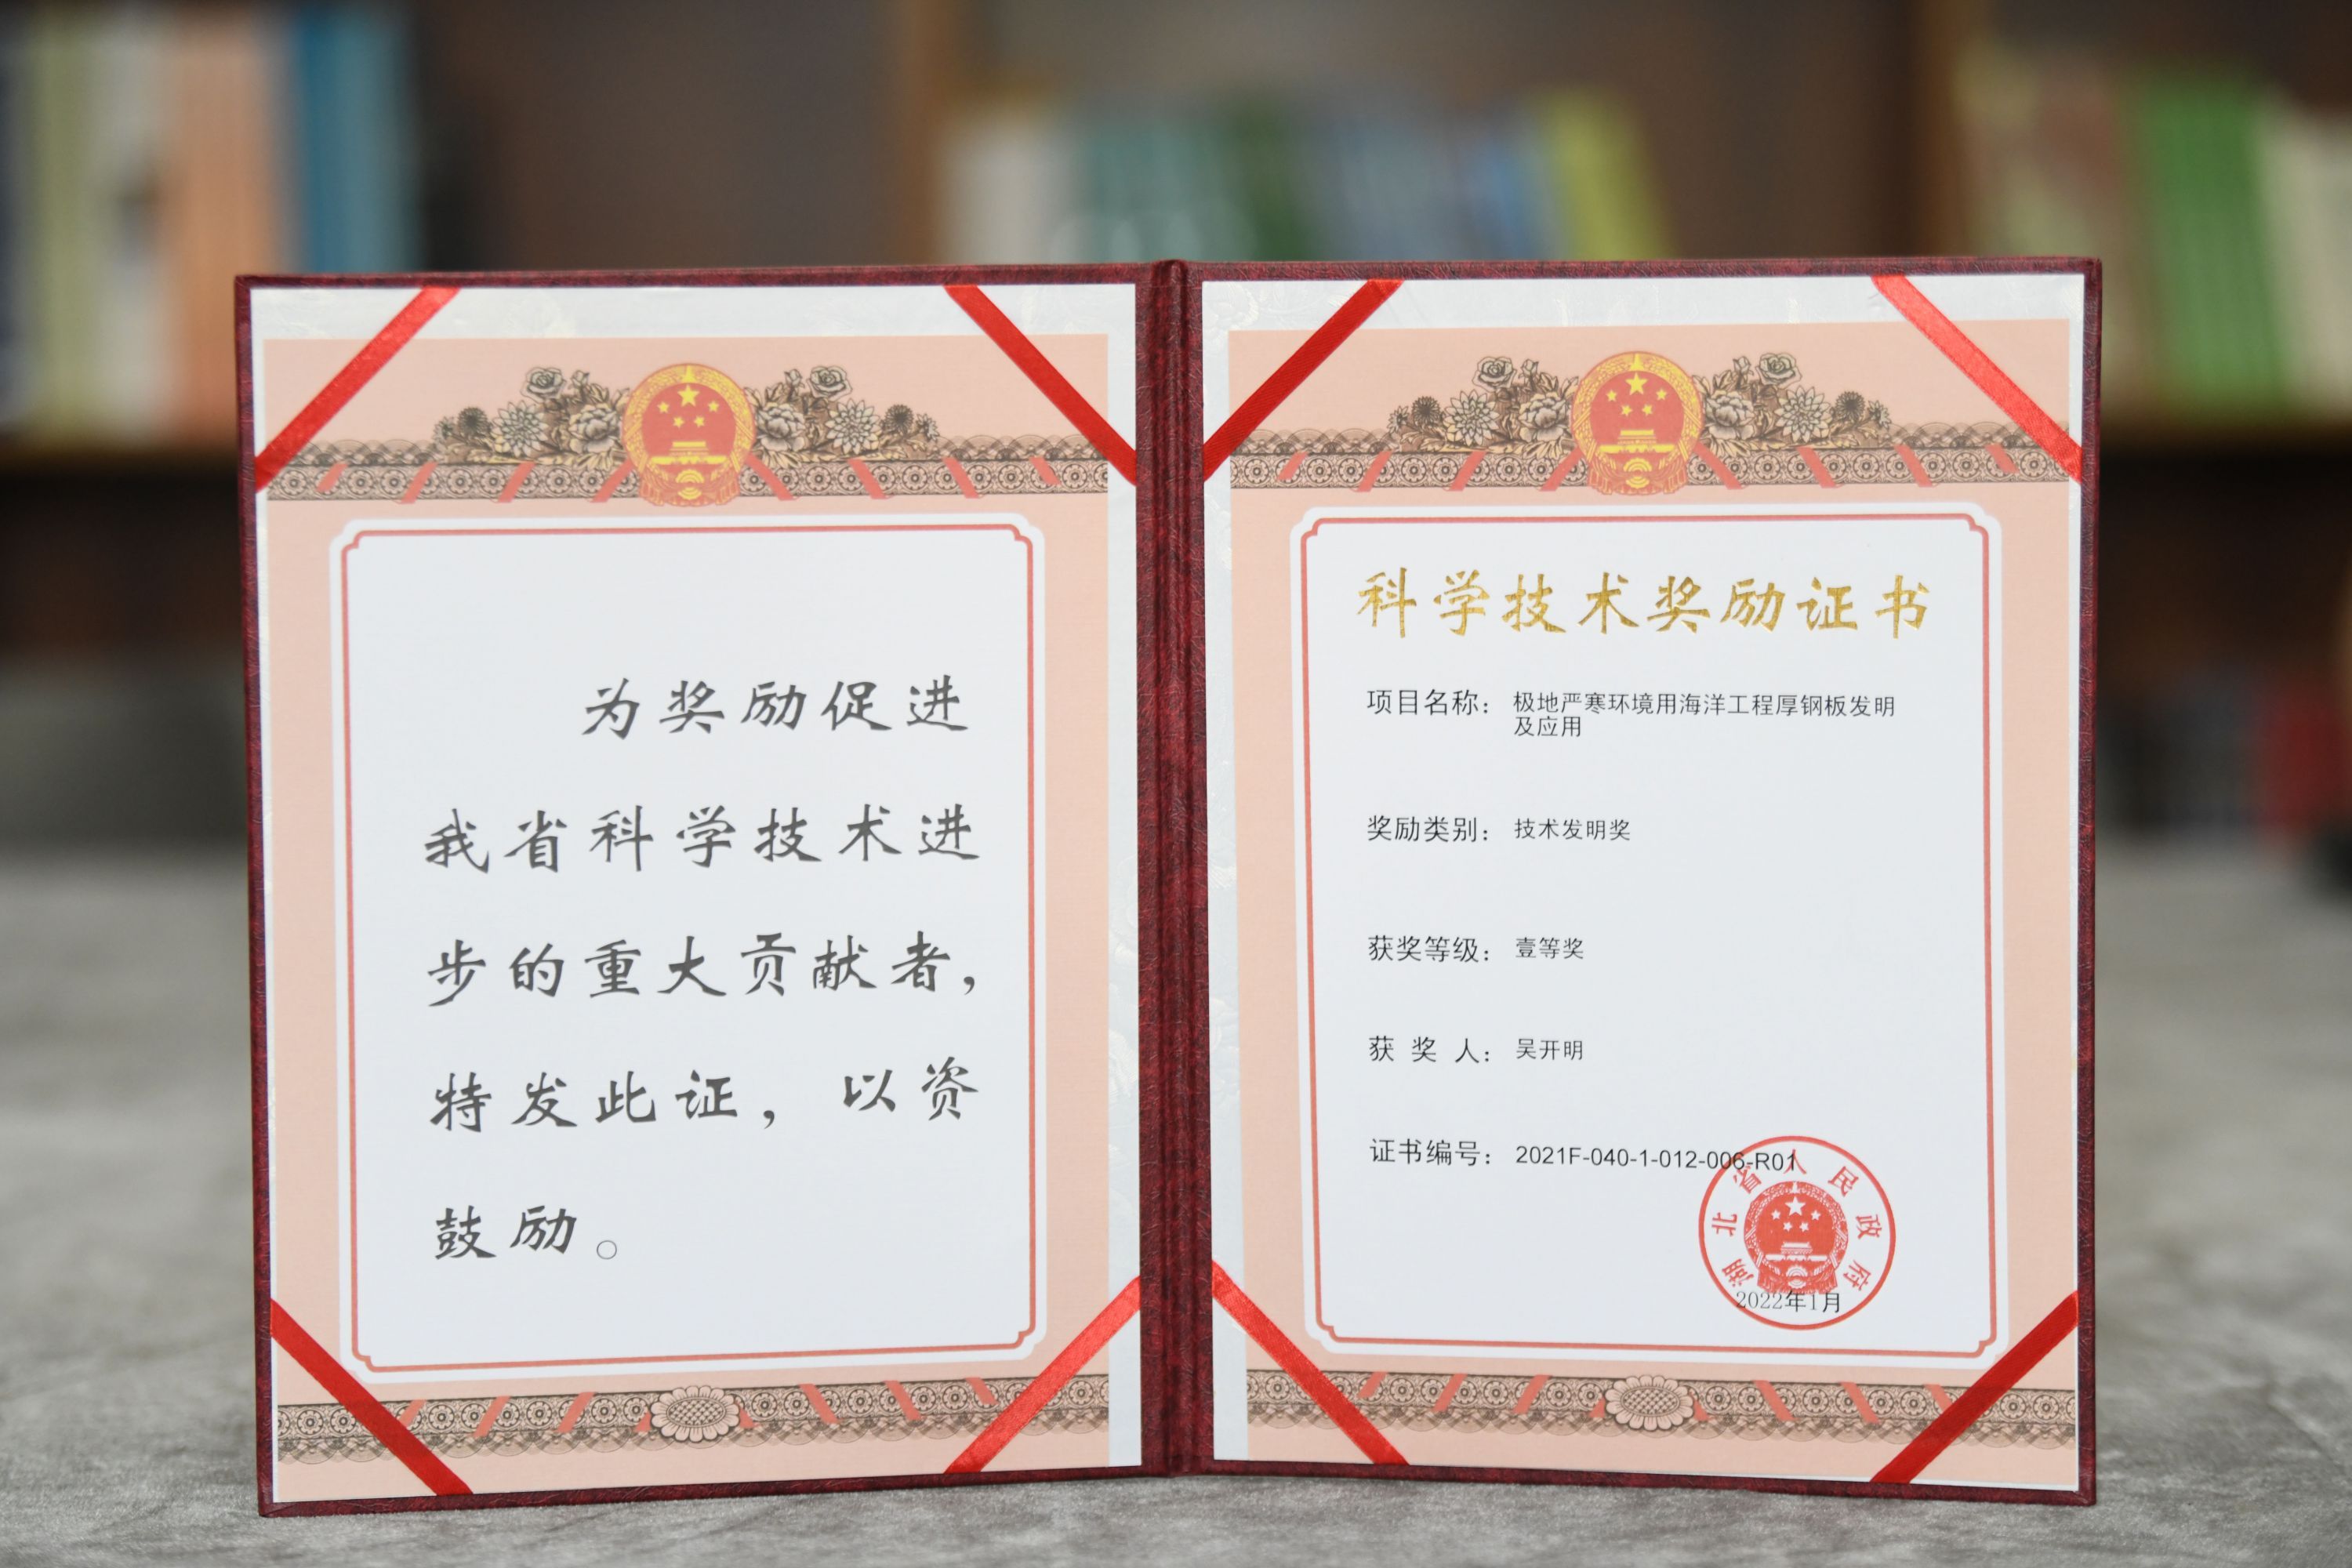 为奖励促进
我省科学技术进
步的重大贡献者，
特发此证，以资
鼓励。
科学技术奖励证书
项目名称：极地严寒环境用海洋工程厚钢板发明
及应用
奖励类别：技术发明奖
获奖等级：壹等奖
获 奖 人：吴开明
证书编号：2021F-040-1-012-006-R01
湖北省人民政府
2022年1月